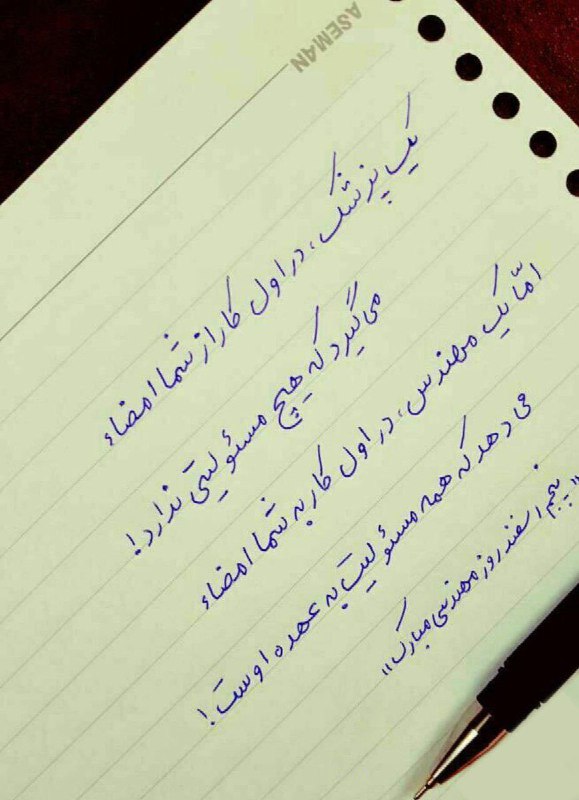 ASEMAN
یک پزشک، در اول کار از شما امضاء
می گیرد که هیچ مسئولیتی ندارد!
امّا یک مهندس، در اول کار به شما امضاء
می دهد که همه مسئولیت به عهده اوست!
"پنجم اسفند روز مهندسی مبارک"